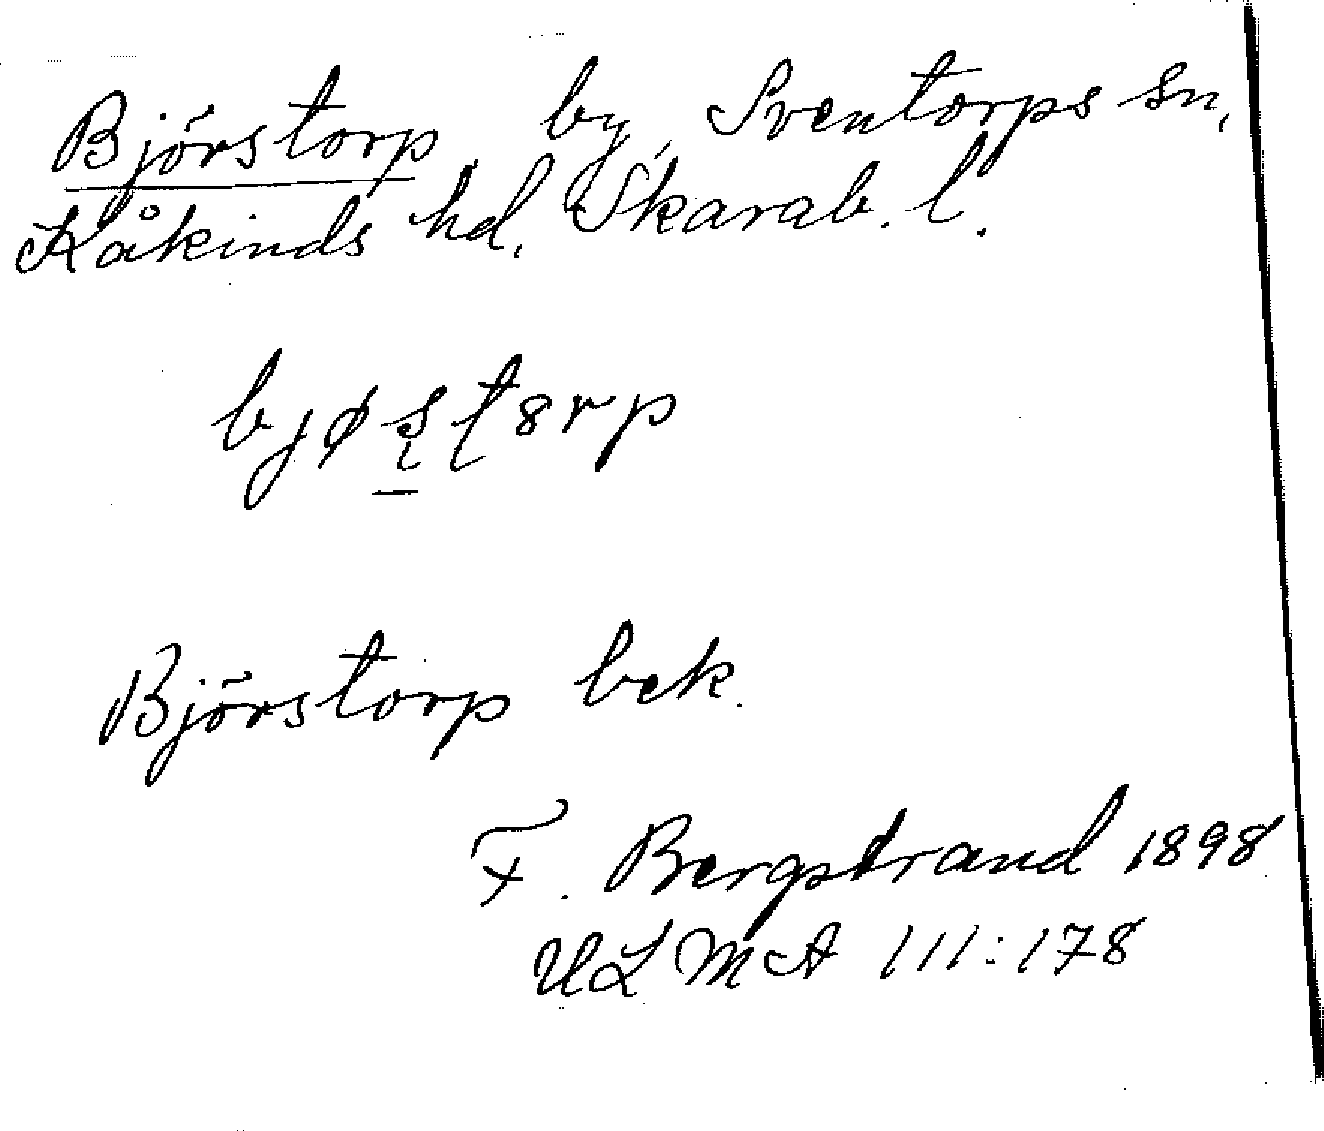 Björstorp by, Sventorps sn,
Kåkinds hd, Skarab. l.
bjøʂʈ8rp
Björstorp bek.
F. Bergstrand 1898
ULMA 111:178